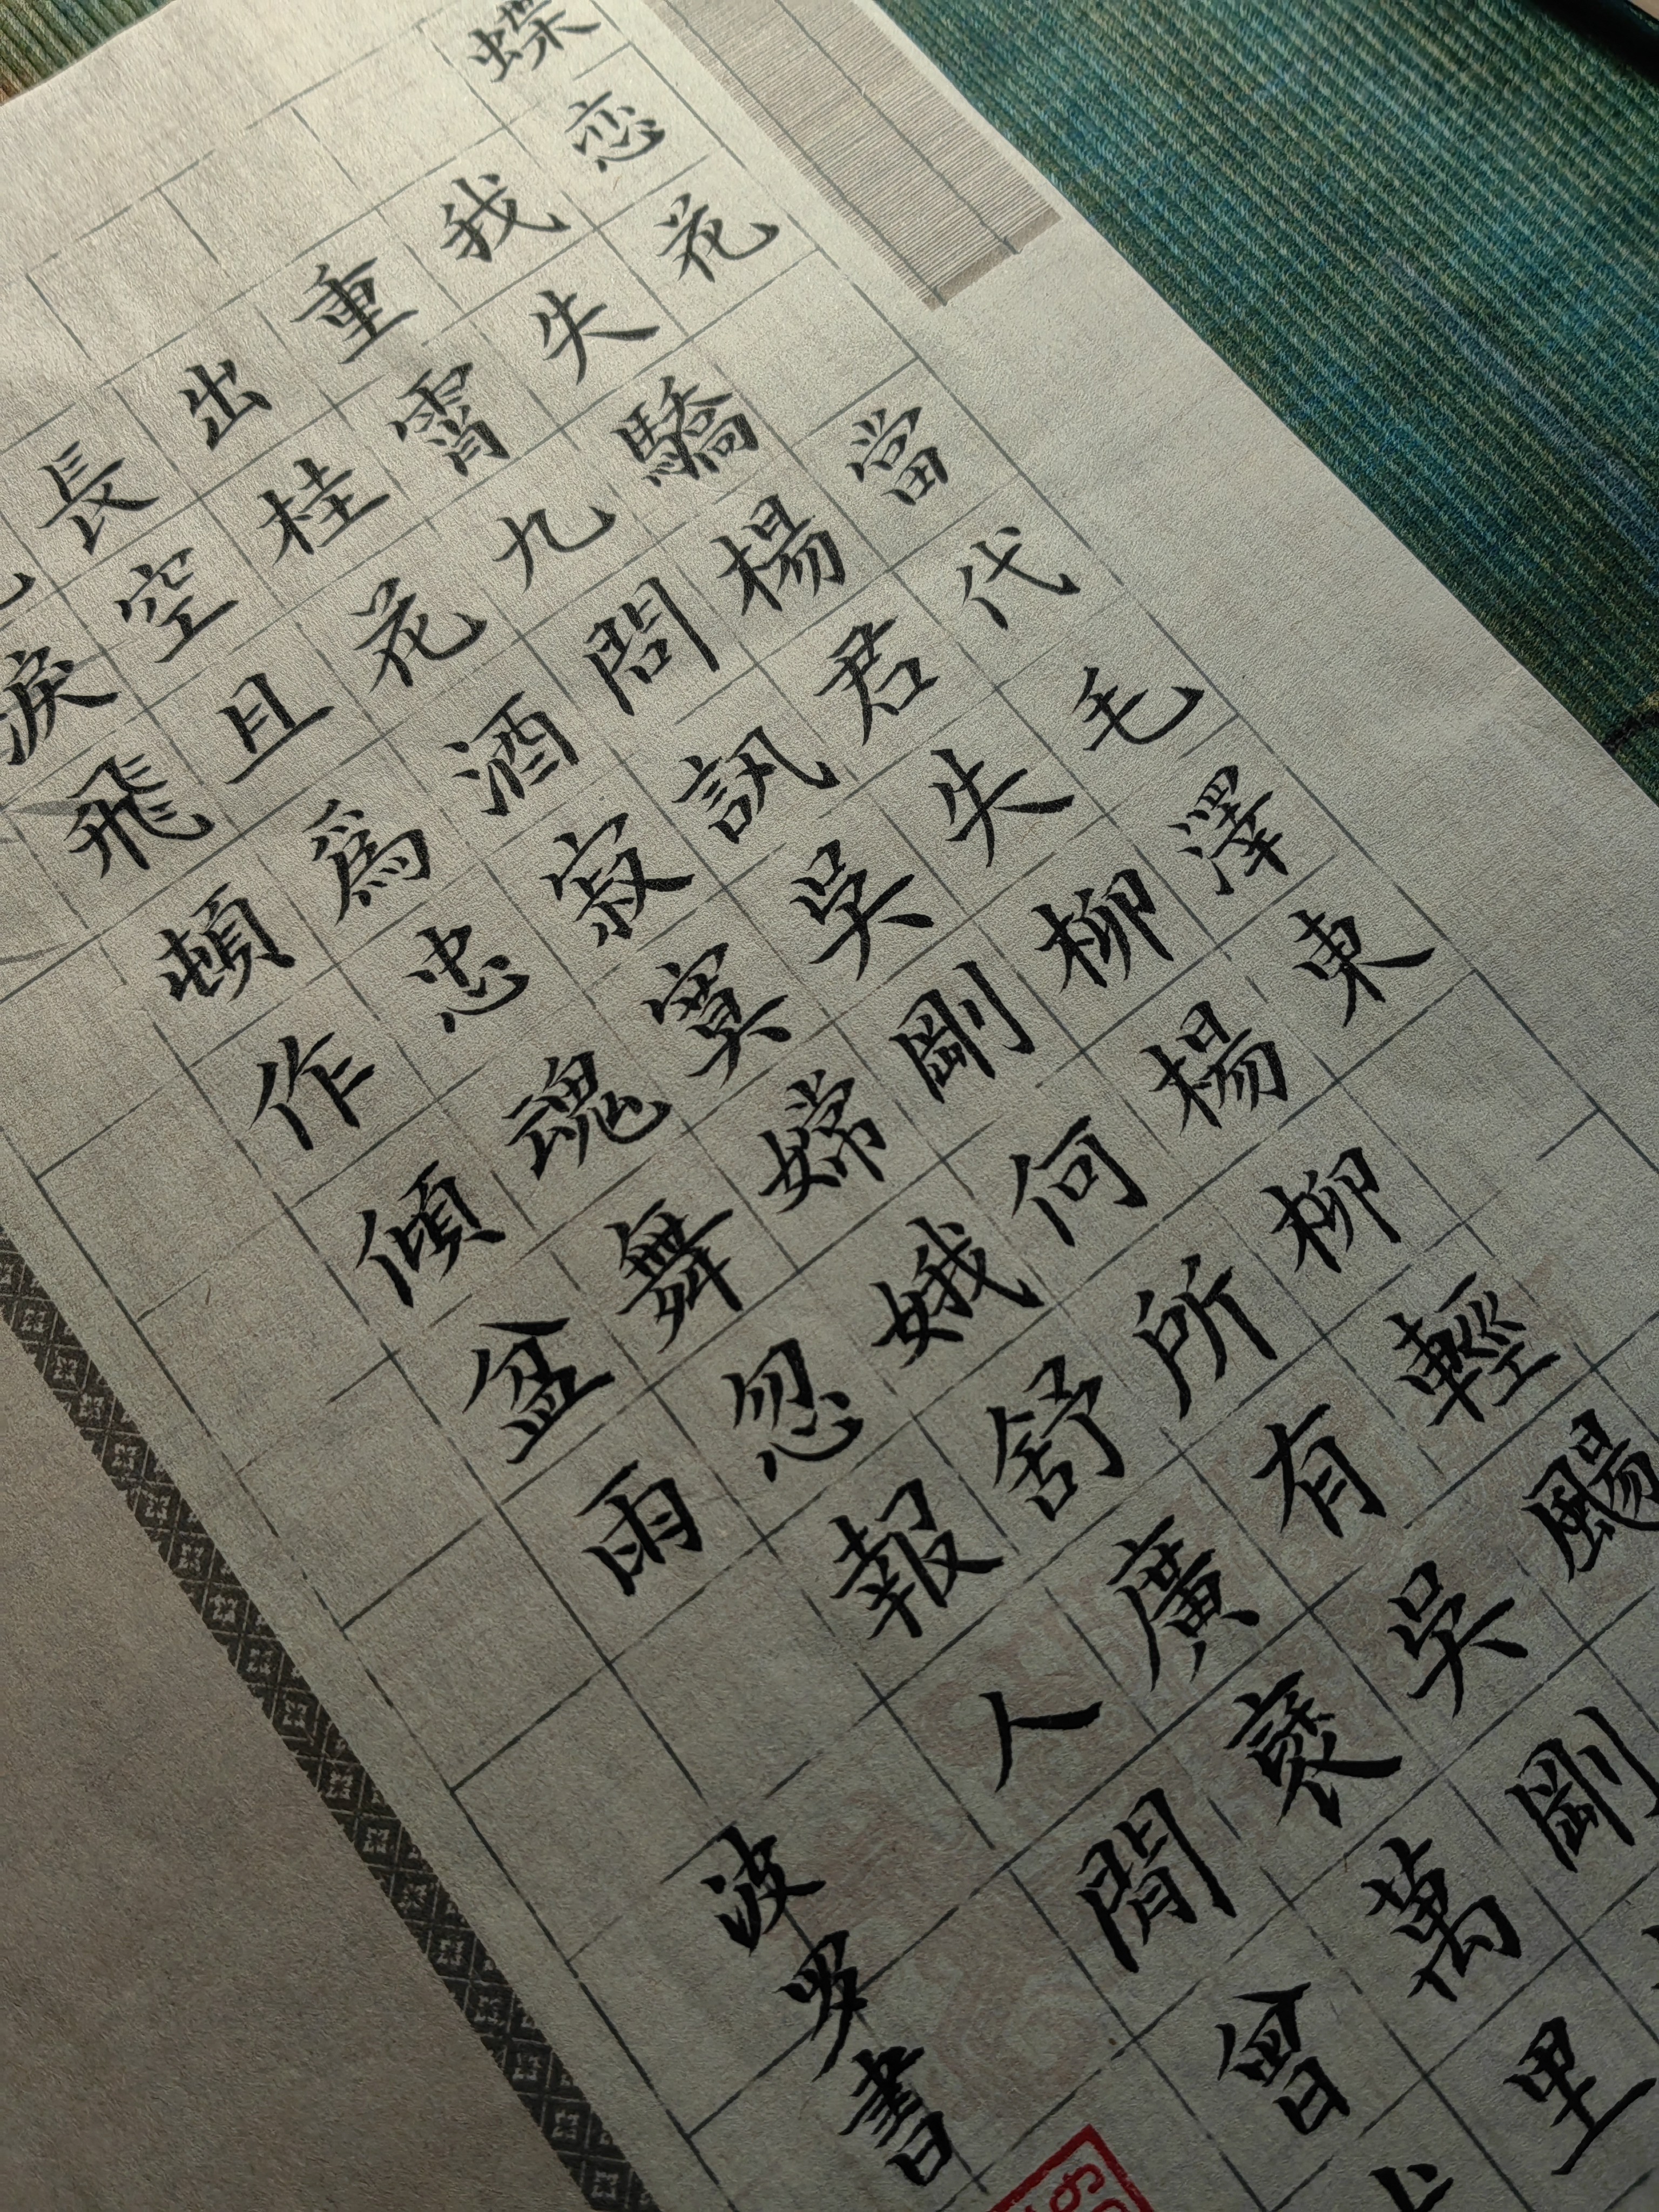 蝶恋花 當代毛澤東
我失驕楊君失柳楊柳輕颺
重霄九問訊吳剛何所有吳剛
出桂花酒寂寞嫦娥舒廣褎萬里
長空且爲忠魂舞忽報人間曾
淚飛頓作傾盆雨
波 書